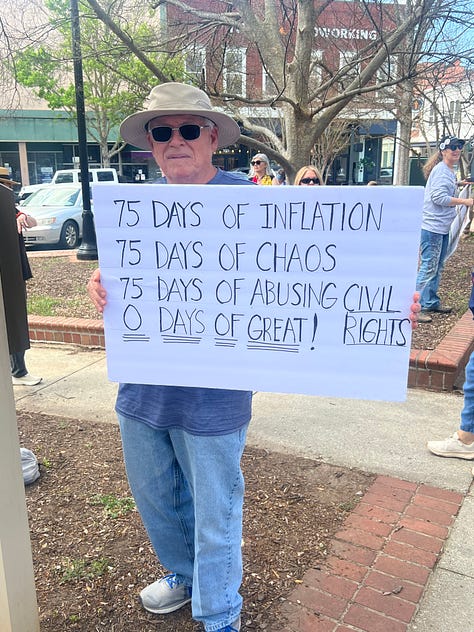 COWORKING
75 DAYS OF INFLATION
75 DAYS OF CHAOS
75 DAYS OF ABUSING CIVIL
0 DAYS OF GREAT! RIGHTS